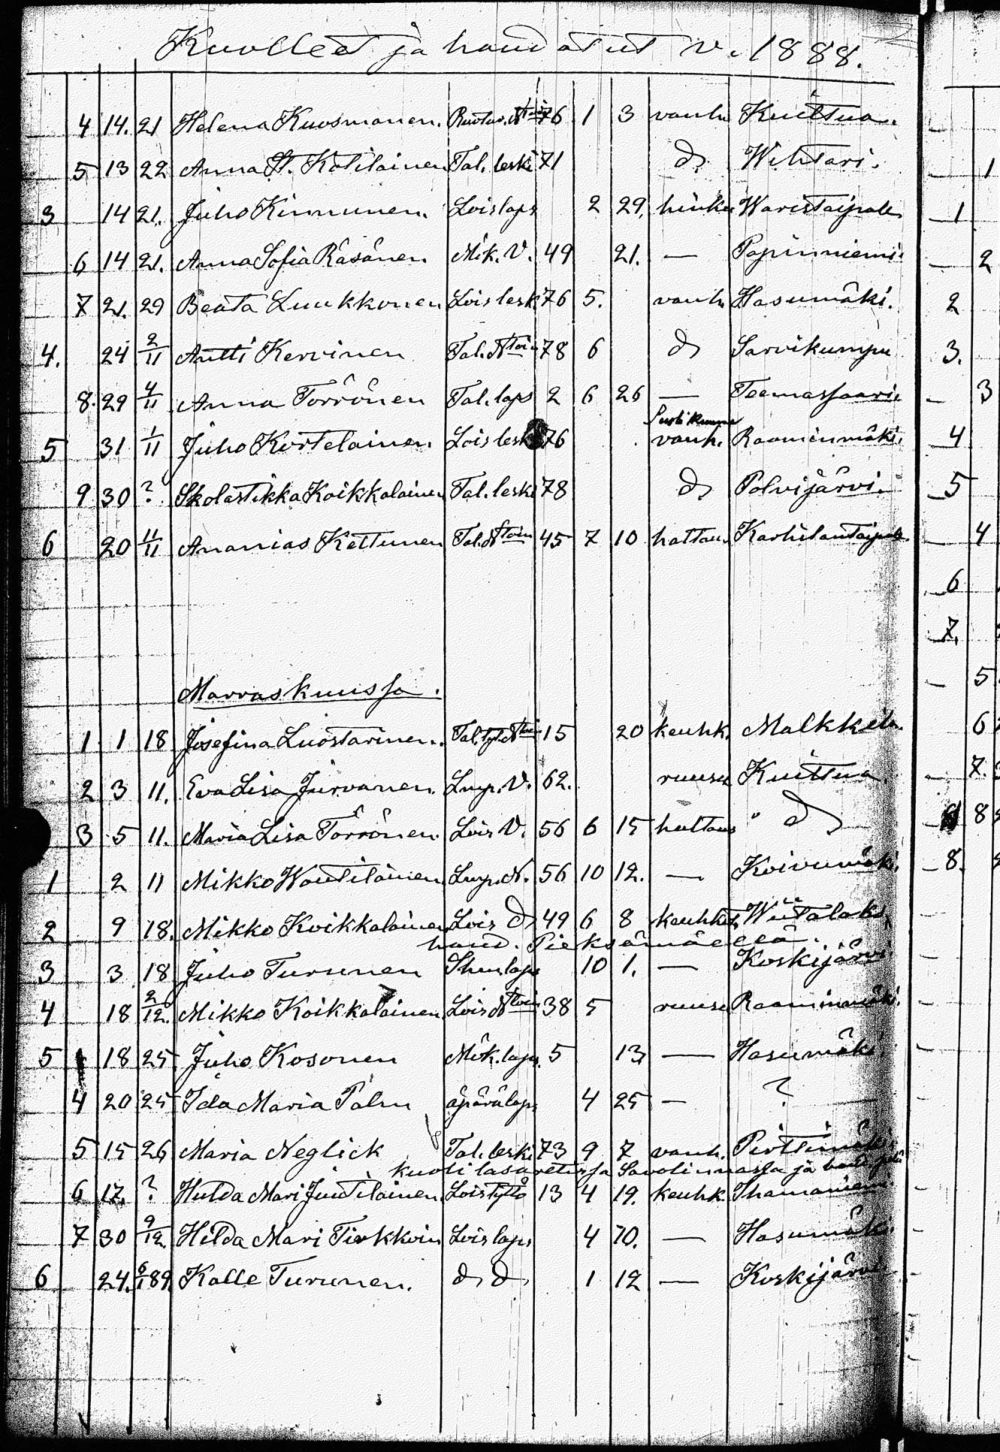 Kuolleet ja haudatut v. 1888.
4 14. 21 Helena Kuosmanen. 76 1 3 vanh. Kuittua.
5 13 22 Anna St. Kotilainen Tal. leski 71 d:o Wihtari.
3 14 21. Juho Kinnunen. Lois laps 2 29. hinku Waristaipale
6 14 21. Anna Sofia Räsänen Mök. V. 49 21. — Papinniemi.
7 21. 29 Beata Luukkonen Lois leski 76 5. vanh. Hasumäki.
4. 24 2/11 Antti Kervinen 78 6 d:o Sarvikumpu
8. 29 4/11 Anna Törrönen Tal. laps 2 6 26 — Teemassaari.
5 31 1/11 Juho Kortelainen Lois leski 76 vanh. Raaminmäki.
9 30 ? Skolastikka Koikkalainen Tal. leski 78 d:o Polvijärvi.
6 20 11/11 Ananias Kettunen 45 7 10 hattau. Karhilantaipale
Marraskuussa.
1 1 18 Josefina Luostarinen. 15 20 keuhk. Malkkila
2 3 11. Eva Lisa Jurvanen. Lmp. V. 62. ruusu Kuittua.
3 5 11. Maria Lisa Törrönen Lois V. 56 6 15 haltaus " d:o
1 2 11 Mikko Wautilainen Lmp. M. 56 10 12. — Koivumäki.
2 9 18. Mikko Koikkalainen Lois d:o 49 6 8 keuhkot. Wiitalaks.
haud. Pieksämäellä.
3 3 18 Juho Turunen 10 1. — Koskijärvi
4 18 2/12. Mikko Koikkalainen 38 5 ruusu Raaminmäki.
5 18 25 Juho Kosonen Mök. laps. 5 13 — Hasumäki.
4 20 25 Ida Maria Palm äpärälaps 4 25 — ?
5 15 26 Maria Neglick Tal. leski 73 9 7 vanh. Perttimäki
kuoli lasaretissa Savolinnassa ja
6 17. ? Hulda Mari Juutilainen Lois tyttö 13 4 19. keuhk. Ihamaniemi.
7 30 9/12 Hilda Mari Tirkkoin Lois laps 4 70. — Hasumäki.
6 24. 6/1 89. Kalle Turunen. d:o d:o 1 12 — Koskijärvi